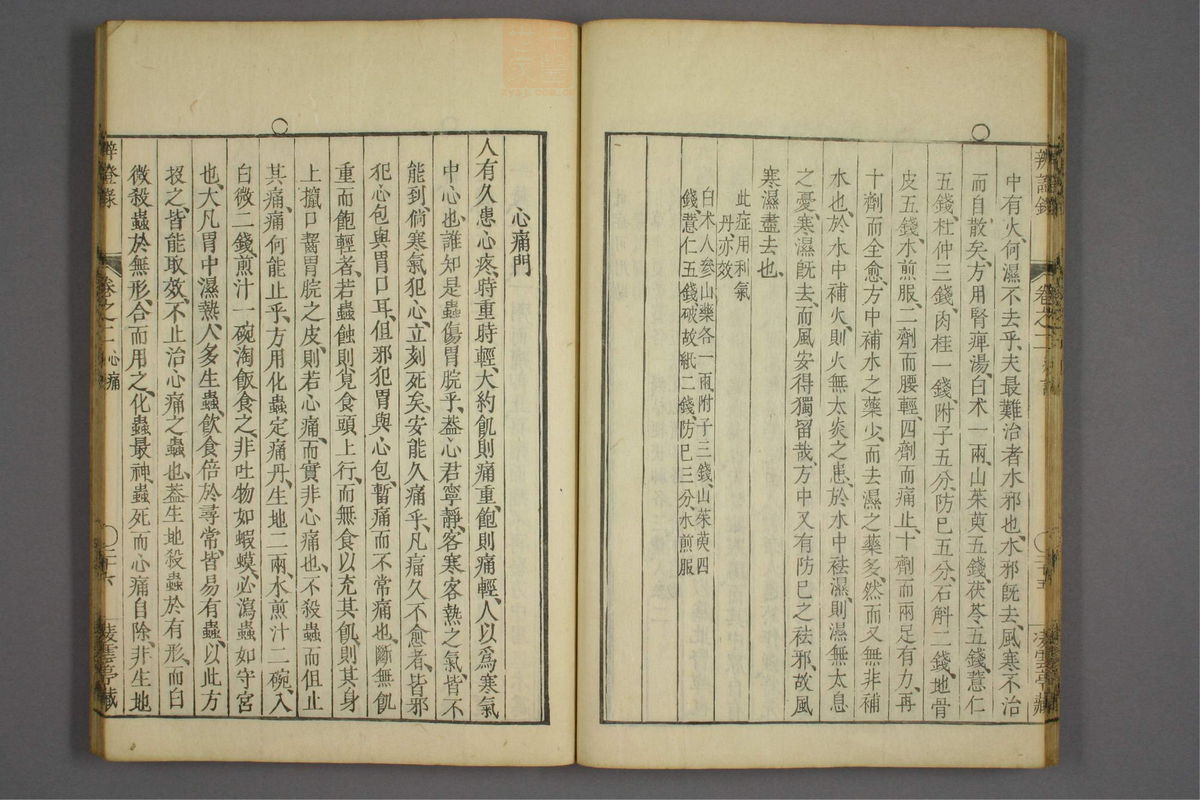 辨證錄 卷之二 三十五 凌雲亭藏
中有火、何濕不去乎、夫最難治者水邪也、水邪旣去、風寒不治
而自散矣、方用腎痺湯、白术一兩、山茱萸五錢、茯苓五錢、薏仁
五錢、杜仲三錢、肉桂一錢、附子五分、防已五分、石斛二錢、地骨
皮五錢、水煎服、二劑而腰輕、四劑而痛止、十劑而兩足有力、再
十劑而全愈、方中補水之藥少、而去濕之藥多、然而又無非補
水也、於水中補火、則火無太炎之患、於水中祛濕、則濕無太息
之憂、寒濕旣去、而風安得獨留哉、方中又有防已之祛邪、故風
寒濕盡去也、
此症用利氣
丹、亦效
白术人參山藥各一兩、附子三錢、山茱萸四
錢、薏仁五錢、破故紙二錢、防已三分、水煎服
心痛門
人有久患心疼、時重時輕、大約飢則痛重、飽則痛輕、人以爲寒氣
中心也、誰知是蟲傷胃脘乎、蓋心君寧靜、客寒客熱之氣、皆不
能到、倘寒氣犯心、立刻死矣、安能久痛乎、凡痛久不愈者、皆邪
犯心包與胃口耳、但邪犯胃與心包、暫痛而不常痛也、斷無飢
重而飽輕者、若蟲蝕則覓食頭上行、而無食以充其飢、則其身
上攛口齧胃脘之皮、則若心痛、而實非心痛也、不殺蟲而但止
其痛、痛何能止乎、方用化蟲定痛丹、生地二兩水煎汁二碗、入
白微二錢、煎汁一碗淘飯食之、非吐物如蝦蟆、必瀉蟲如守宮
也、大凡胃中濕熱、人多生蟲、飲食倍於尋常、皆易有蟲、以此方
投之、皆能取效、不止治心痛之蟲也、蓋生地殺蟲於有形、而白
微殺蟲於無形、合而用之、化蟲最神、蟲死而心痛自除、非生地
辨證錄 卷之二 心痛 三十六 凌雲亭藏